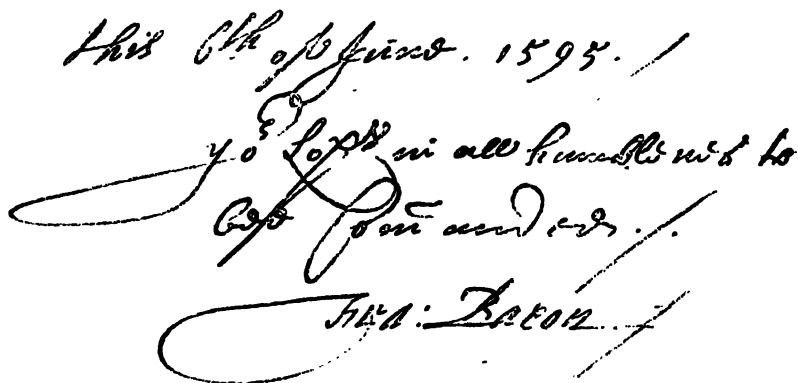 this 6th of June. 1595. /
yoᵉ Lopˢ in all humblenes to
be Comanded. /.
Fra: Bacon. /